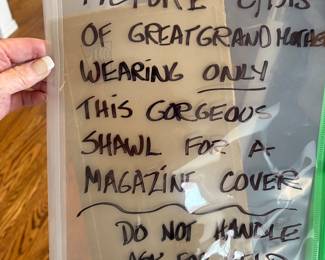 PICTURE
OF GREATGRANDMOTHER
WEARING ONLY
THIS GORGEOUS
SHAWL FOR A
MAGAZINE COVER
DO NOT HANDLE
ASK FOR HELP